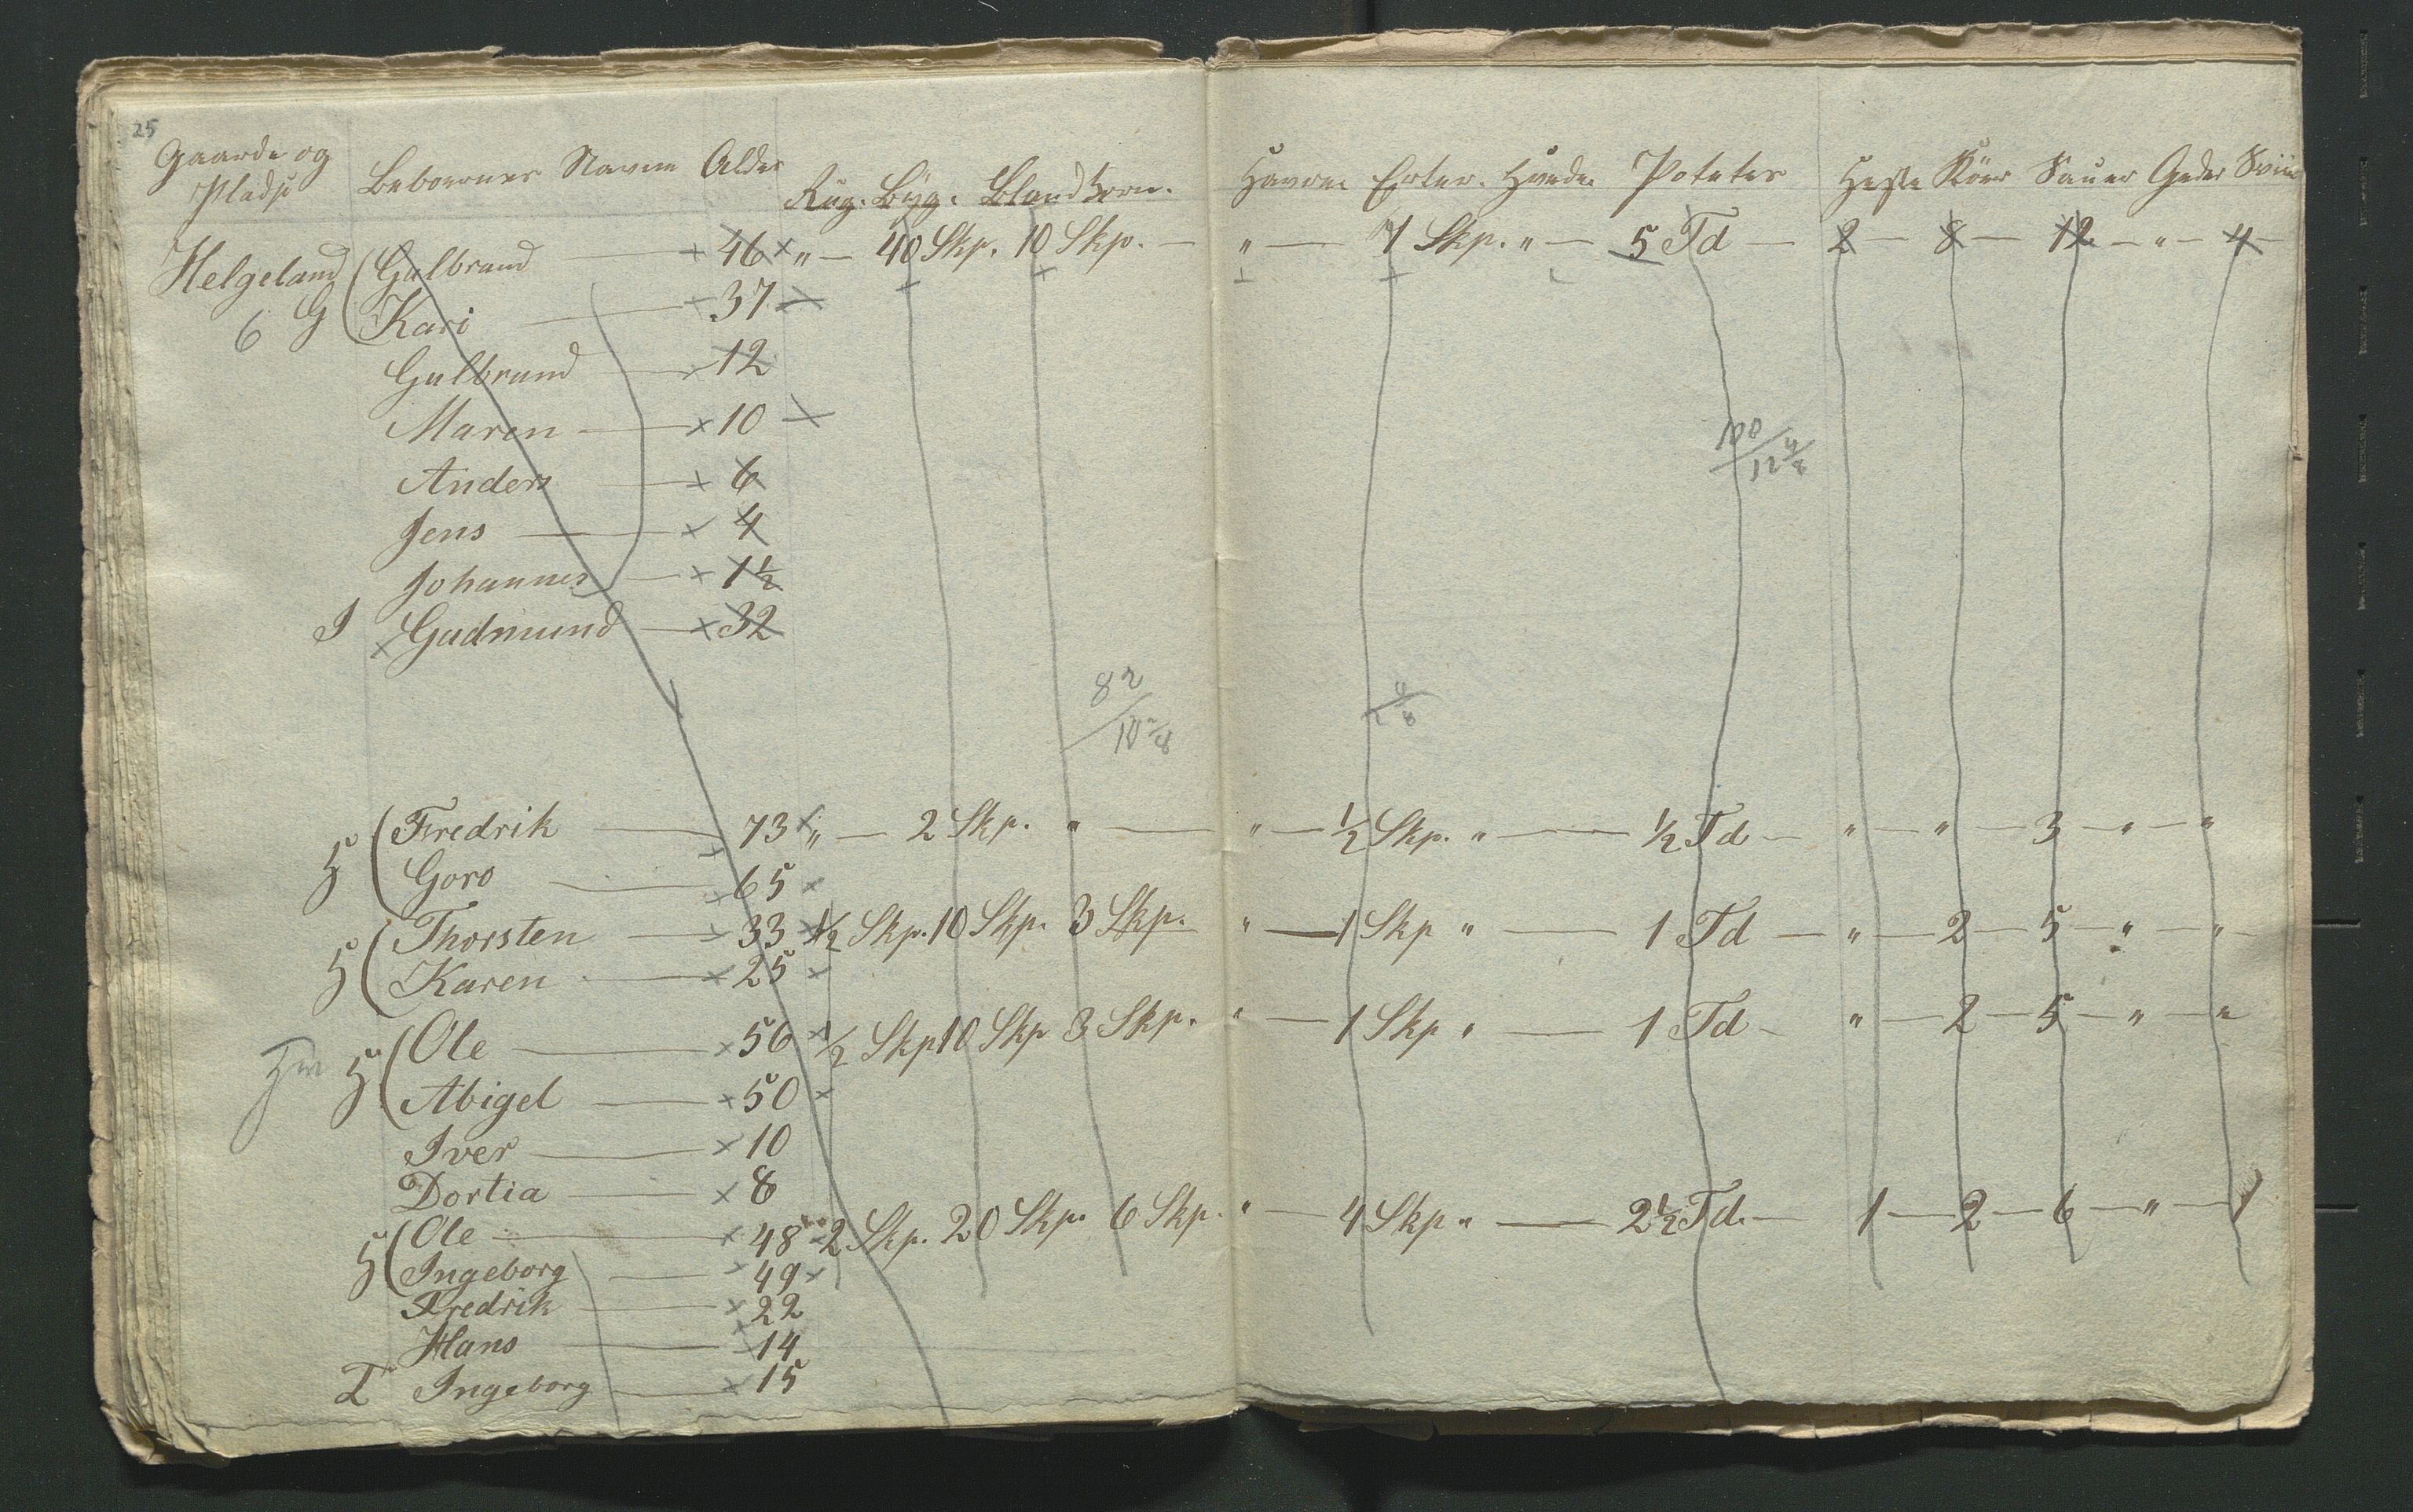 25
Gaarde og Pladse Beboernes Navne Alder Rug. Byg. Blandkorn. Havre Erter. Hvede Poteter Heste Köer Sauer Geder Sviin
Helgeland Gulbrand — 46 " — 40 Skp. 10 Skp. — " — 7 Skp. " — 5 Td — 2 — 8 — 12 — " — 4
6 G Kari — 37
Gulbrand — 12
Maren — 10
Anders — 6
Jens — 4
Johannes — 1½
I Gudmund — 32
100
12 4/8
82
10 2/8
H Fredrik — 73 " — 2 Skp. " — " — ½ Skp. " — ½ Td — " — " — 3 — " — "
Goro — 65
H Thorsten — 33 ½ Skp. 10 Skp. 3 Skp. " — 1 Skp " — 1 Td — " — 2 — 5 — " — "
Karen — 25
H Ole — 56 ½ Skp 10 Skp 3 Skp. " — 1 Skp " — 1 Td — " — 2 — 5 — " — "
Abigel — 50
Iver — 10
Dortia — 8
H Ole — 48 2 Skp. 20 Skp. 6 Skp. " — 4 Skp " — 2½ Td. — 1 — 2 — 6 — " — 1
Ingeborg — 49
Fredrik — 22
Hans — 14
I Ingeborg — 15